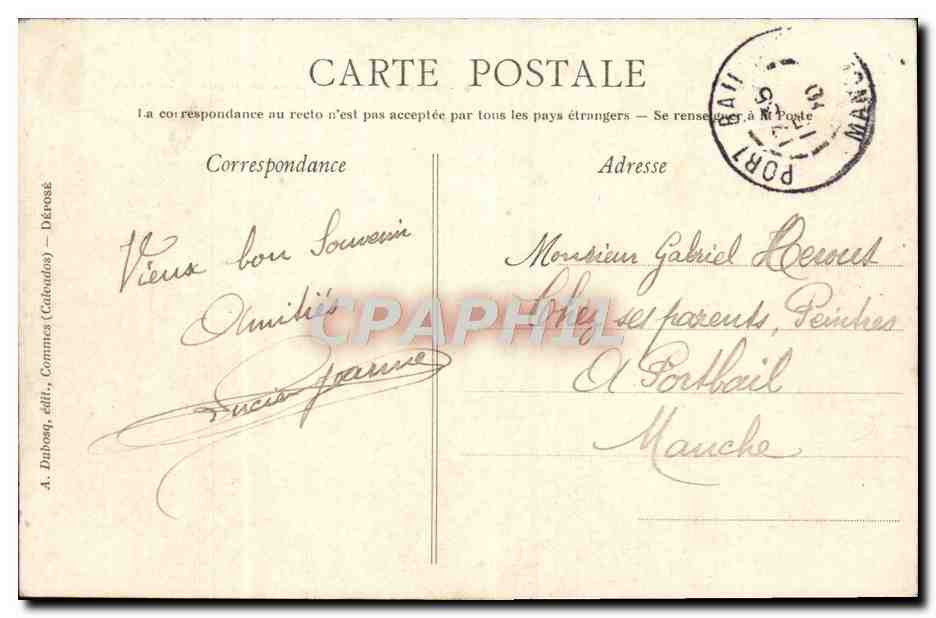 CARTE POSTALE
La correspondance au recto n'est pas acceptée par tous les pays étrangers — Se renseigner à la Poste
Correspondance
Vieux bon Souvenir
Amitiés
Lucien Joanne
Adresse
Monsieur Gabriel Herout
Chez ses parents, Peintres
A Portbail
Manche
A. Dubosq, édit., Commes (Calvados) — DÉPOSÉ
PORT BAIL
CPAPHIL